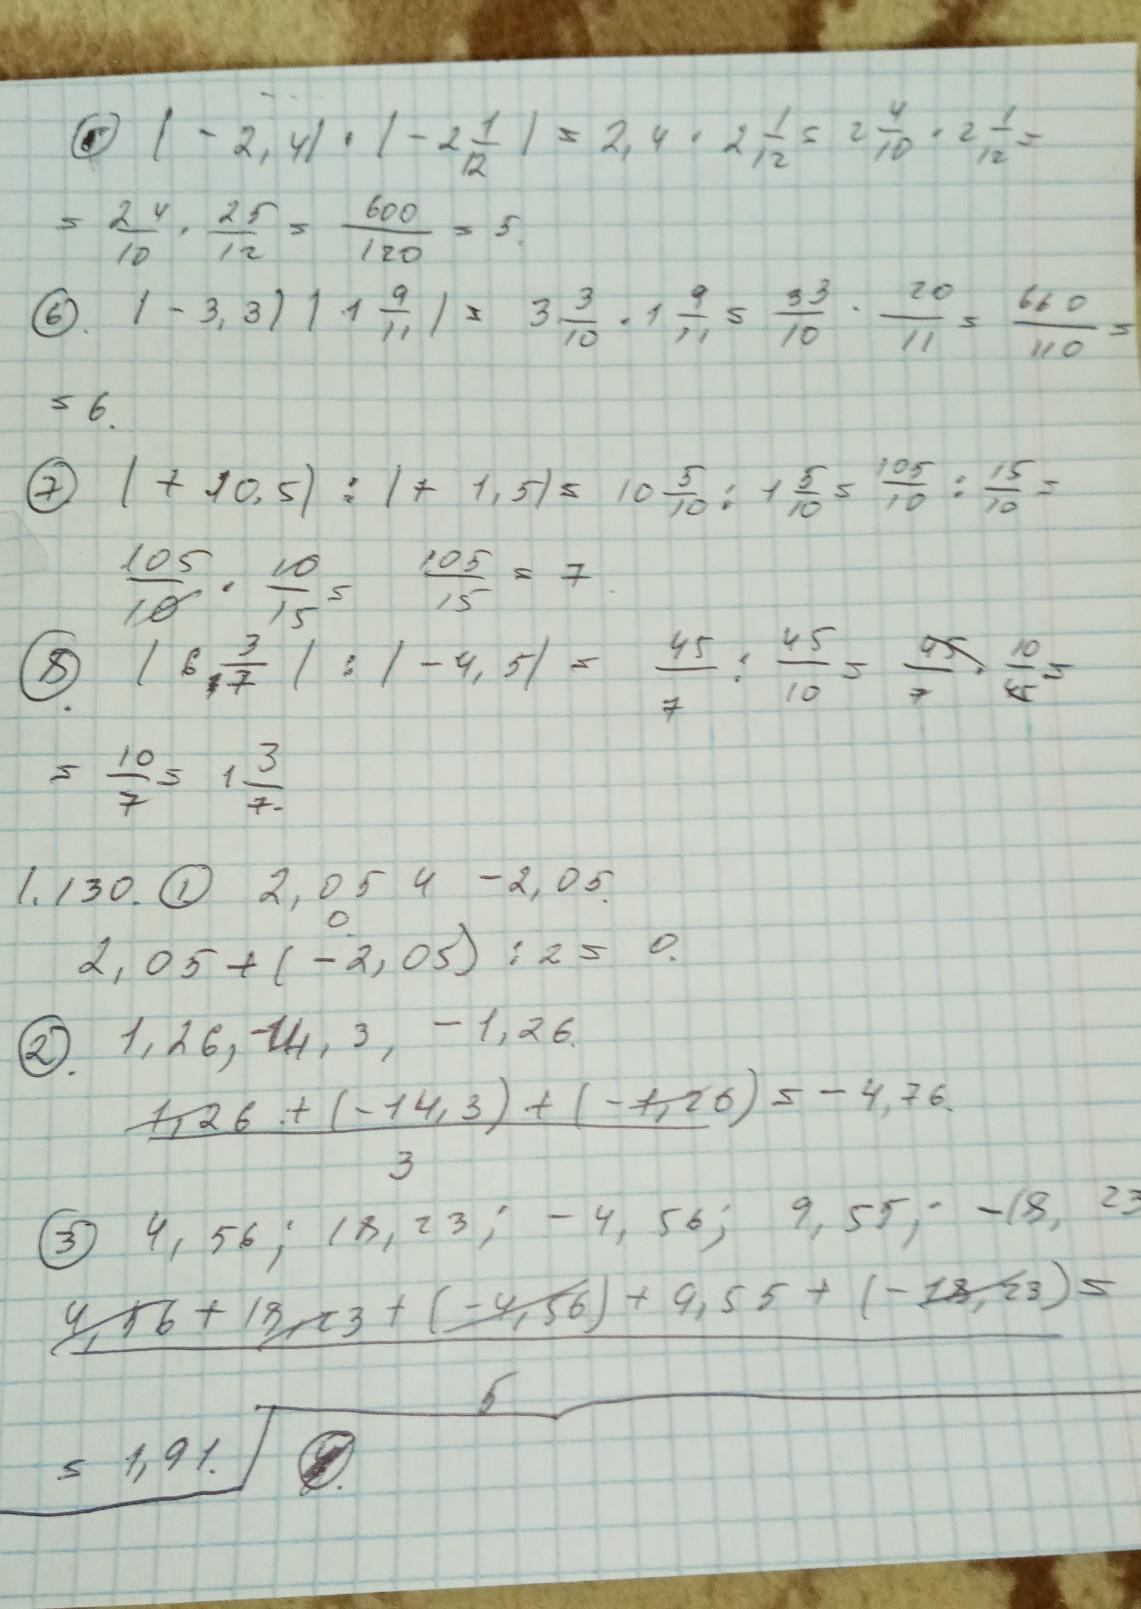 ⑤ |-2,4| · |-2 1/12| = 2,4 · 2 1/12 = 2 4/10 · 2 1/12 =
= 24/10 · 25/12 = 600/120 = 5.
⑥. |-3,3| |1 9/11| = 3 3/10 · 1 9/11 = 33/10 · 20/11 = 660/110 =
= 6.
⑦ |+10,5| : |+1,5| = 10 5/10 : 1 5/10 = 105/10 : 15/10 =
105/10 · 10/15 = 105/15 = 7.
⑧. |6 3/7| : |-4,5| = 45/7 : 45/10 = 45/7 · 10/45 =
= 10/7 = 1 3/7.
1.130. ① 2,05 и -2,05.
0.
2,05 + (-2,05) : 2 = 0.
②. 1,26, -14,3, -1,26.
1,26 + (-14,3) + (-1,26) = -4,76.
3
③ 4,56; 18,23; -4,56; 9,55; -18,23
4,56 + 18,23 + (-4,56) + 9,55 + (-18,23) =
5
= 1,91.